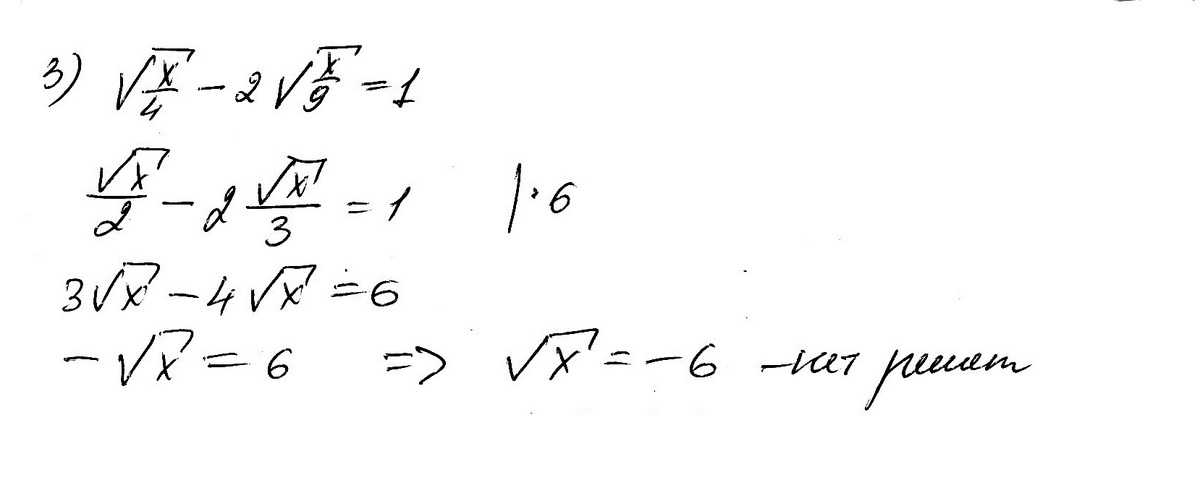 3) √(x/4) - 2√(x/9) = 1
√x/2 - 2 √x/3 = 1 | · 6
3√x - 4√x = 6
-√x = 6 => √x = -6 - нет решен